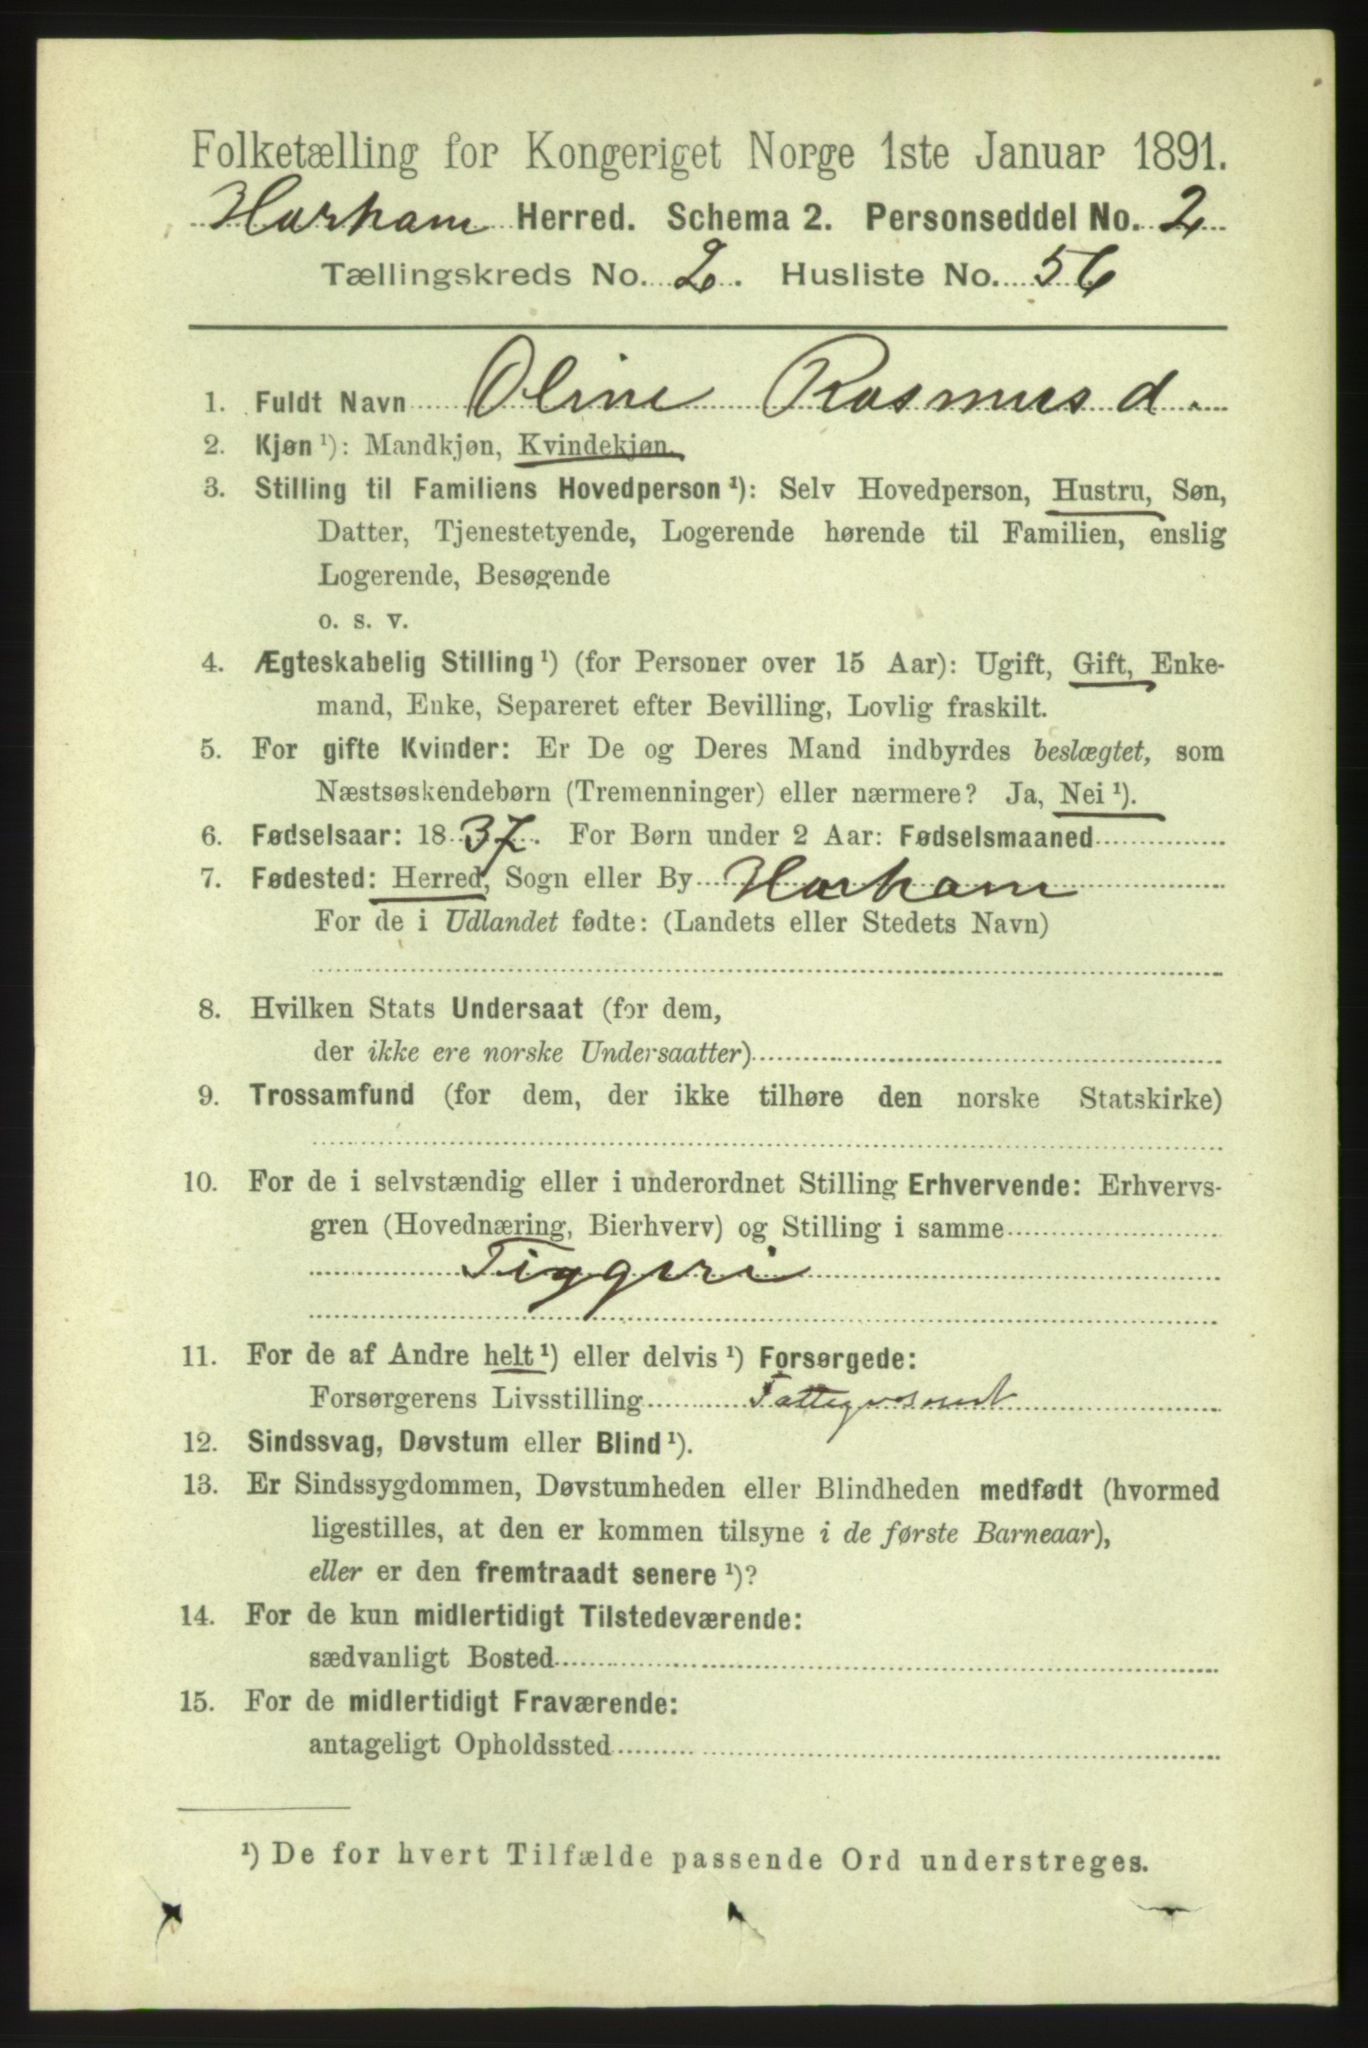 Folketælling for Kongeriget Norge 1ste Januar 1891.
Harham Herred. Schema 2. Personseddel No. 2
Tællingskreds No. 2. Husliste No. 56
1. Fuldt Navn Oline Rasmusd.
2. Kjøn ¹): Mandkjøn, Kvindekjøn.
3. Stilling til Familiens Hovedperson ¹): Selv Hovedperson, Hustru, Søn,
Datter, Tjenestetyende, Logerende hørende til Familien, enslig
Logerende, Besøgende
o. s. v.
4. Ægteskabelig Stilling ¹) (for Personer over 15 Aar): Ugift, Gift, Enke-
mand, Enke, Separeret efter Bevilling, Lovlig fraskilt.
5. For gifte Kvinder: Er De og Deres Mand indbyrdes beslægtet, som
Næstsøskendebørn (Tremenninger) eller nærmere? Ja, Nei ¹).
6. Fødselsaar: 1837. For Børn under 2 Aar: Fødselsmaaned
7. Fødested: Herred, Sogn eller By Harham
For de i Udlandet fødte: (Landets eller Stedets Navn)
8. Hvilken Stats Undersaat (for dem,
der ikke ere norske Undersaatter)
9. Trossamfund (for dem, der ikke tilhøre den norske Statskirke)
10. For de i selvstændig eller i underordnet Stilling Erhvervende: Erhvervs-
gren (Hovednæring, Bierhverv) og Stilling i samme
Tiggeri
11. For de af Andre helt ¹) eller delvis ¹) Forsørgede:
Forsørgerens Livsstilling
12. Sindssvag, Døvstum eller Blind ¹).
13. Er Sindssygdommen, Døvstumheden eller Blindheden medfødt (hvormed
ligestilles, at den er kommen tilsyne i de første Barneaar),
eller er den fremtraadt senere ¹)?
14. For de kun midlertidigt Tilstedeværende:
sædvanligt Bosted
15. For de midlertidigt Fraværende:
antageligt Opholdssted
¹) De for hvert Tilfælde passende Ord understreges.